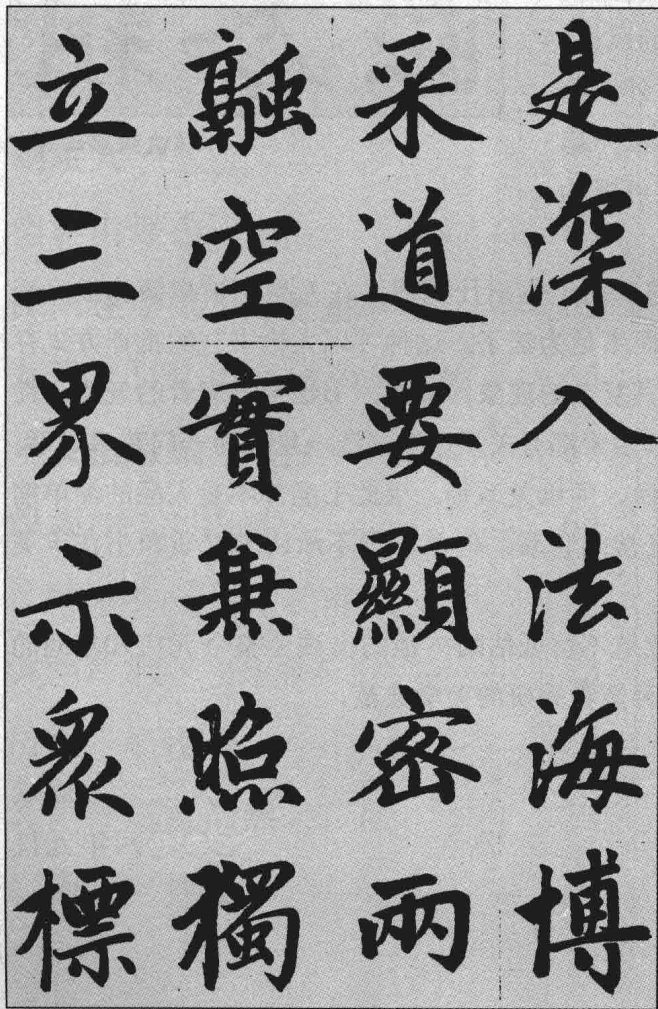 是深入法海博
采道要顯密兩
融空實兼照獨
立三界示衆標